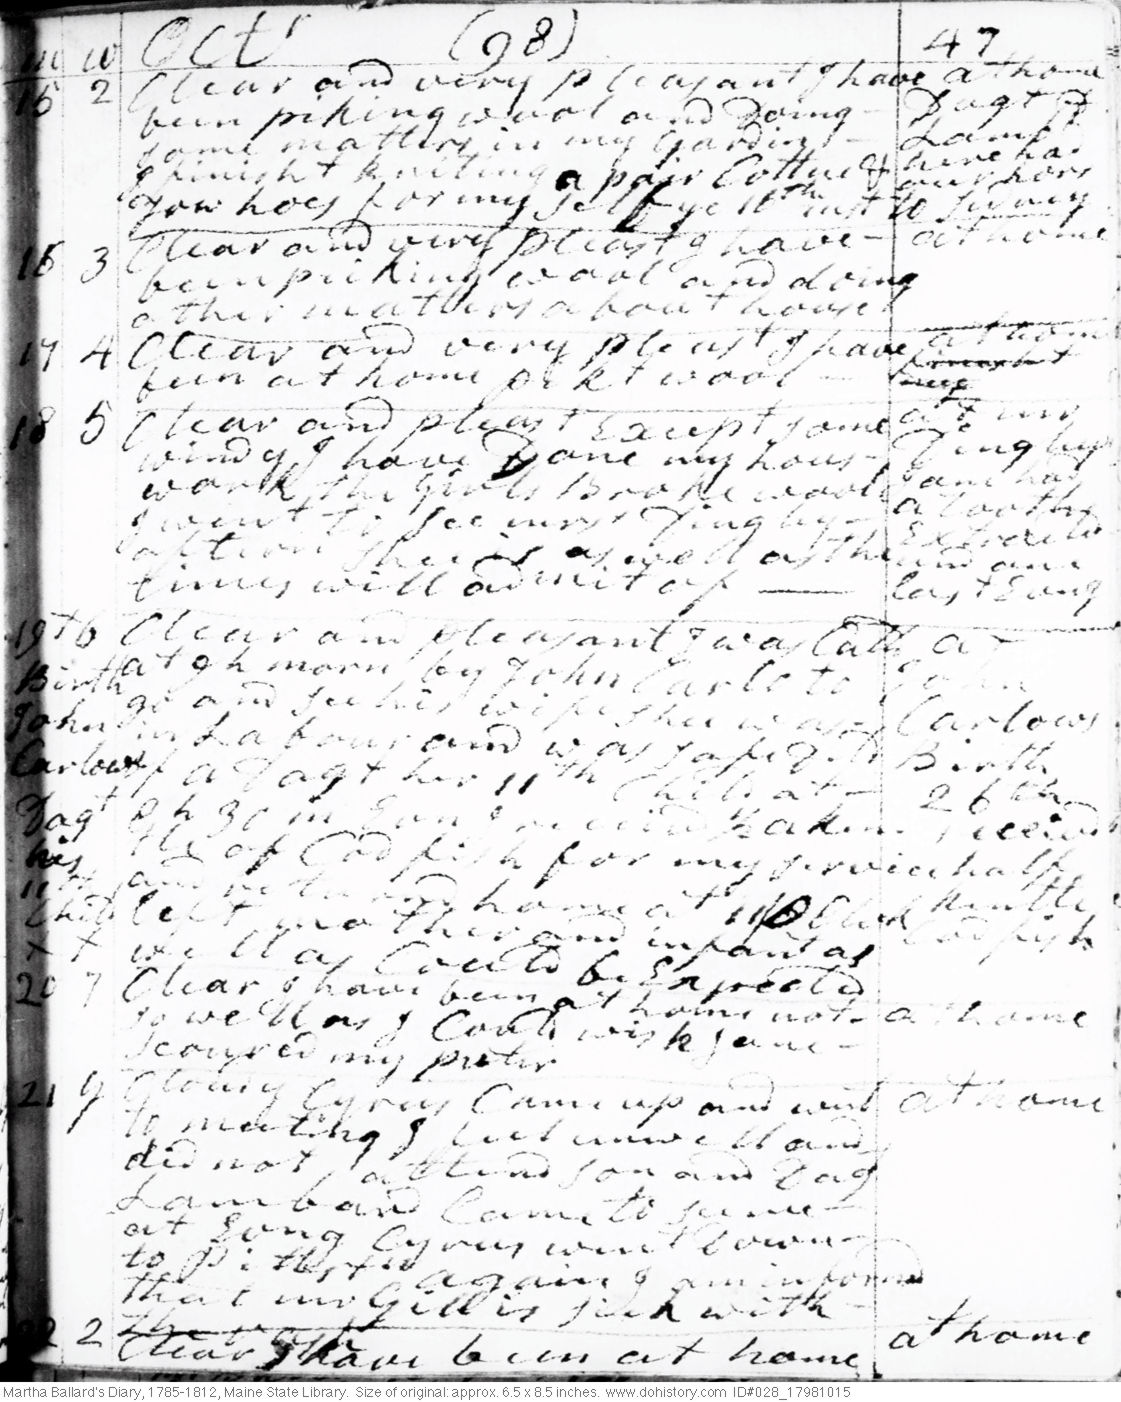 m w Octr (98) 47
15 2 Clear and very pleasant I have at home
been piking wool and Doing Dagt
some matters in my gardin Lambd
I finisht knitting a pair Cottne & here has
Tow hoes for my self ye 10th inst our hors
to Sidney
16 3 Clear and very pleast I have at home
been piking wool and doing
other matters about house
17 4 Clear and very pleast I have at home
been at home pikt wool
18 5 Clear and pleast Except some at mr
windy I have Done my hous Pingbys
work the Girls Broke wool Sam has
I went to see mrs Pingby a tooth
aftern shee is as well as the Extracted
times will admit of last Evng
19th 6 Clear and pleasant I was Calld at
Birth at 9h morn by John Carlo to John
John go and see his wife shee was Carlows
Carlows in Labour and was safe Dd Birth
Dagt of a Dagt her 11th Child at 26th
his 8h 30 m Evng I received
11th of Cod fish for my servic half
Child and returnd home at 11 O Clok
x x left mother and infant as Cod fish
well as Could be Expected
20 7 Clear I have been at home not at home
so well as I Could wish Jane
scoured my puter
21 g Clouy Cyrus Came up and went at home
to meeting I feel unwell and
did not attend son and Dag
Lambard Came to see me
at Evng Cyrus went Down
to Pittstn again I am informd
that mr Gill is sick with
the
22 2 Clear I have been at home at home
Martha Ballard's Diary, 1785-1812, Maine State Library. Size of original: approx. 6.5 x 8.5 inches. www.dohistory.com ID#028_17981015